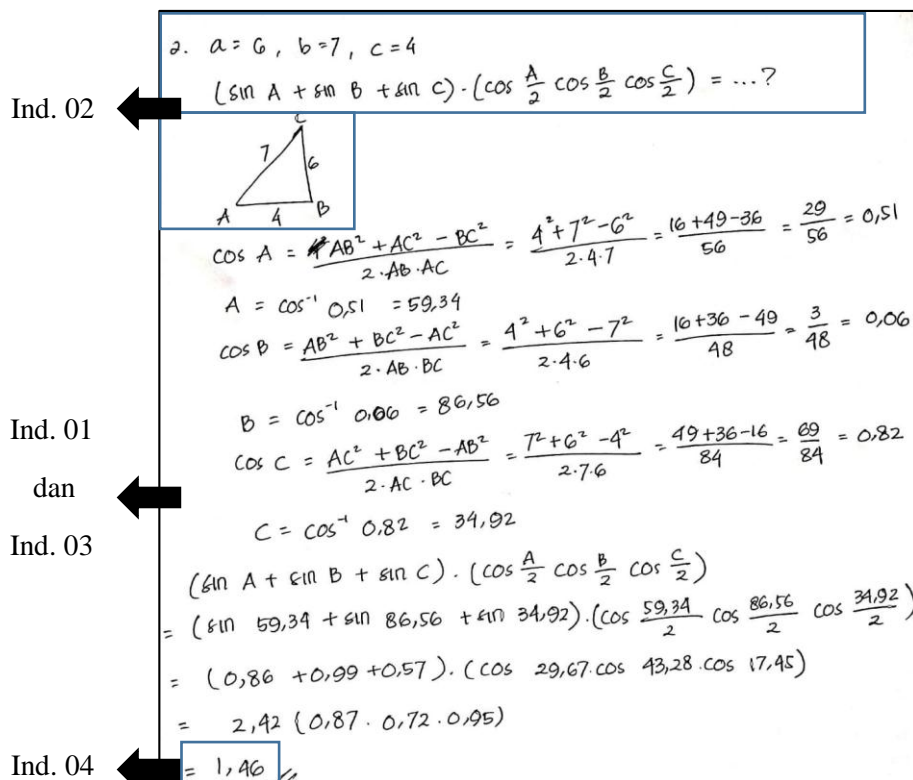 2. a = 6, b = 7, c = 4
(sin A + sin B + sin C) . (cos A/2 cos B/2 cos C/2) = ...?
Ind. 02
C
7 6
A 4 B
cos A = AB² + AC² - BC² / 2 . AB . AC = 4² + 7² - 6² / 2 . 4 . 7 = 16 + 49 - 36 / 56 = 29/56 = 0,51
A = cos⁻¹ 0,51 = 59,34
cos B = AB² + BC² - AC² / 2 . AB . BC = 4² + 6² - 7² / 2 . 4 . 6 = 16 + 36 - 49 / 48 = 3/48 = 0,06
B = cos⁻¹ 0,06 = 86,56
Ind. 01
cos C = AC² + BC² - AB² / 2 . AC . BC = 7² + 6² - 4² / 2 . 7 . 6 = 49 + 36 - 16 / 84 = 69/84 = 0,82
dan
C = cos⁻¹ 0,82 = 34,92
Ind. 03
(sin A + sin B + sin C) . (cos A/2 cos B/2 cos C/2)
= (sin 59,34 + sin 86,56 + sin 34,92) . (cos 59,34/2 cos 86,56/2 cos 34,92/2)
= (0,86 + 0,99 + 0,57) . (cos 29,67 . cos 43,28 . cos 17,45)
= 2,42 (0,87 . 0,72 . 0,95)
Ind. 04
= 1,46 //